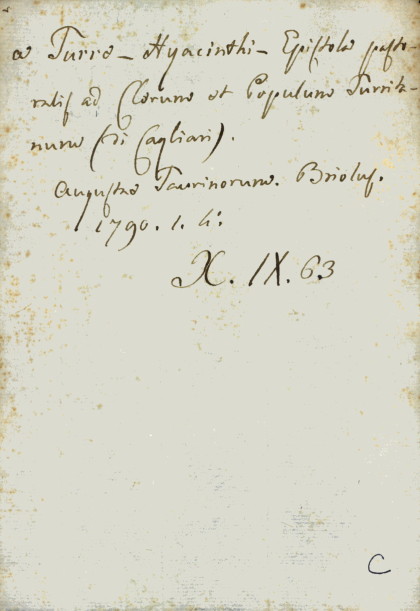 a Turre - Hyacinthi - Epistola pasto-
ralis ad Clerum et Populum Turrita-
num (di Cagliari).
Augustae Taurinorum. Briolus.
1790. 1. 4°.
X. IX. 63
C